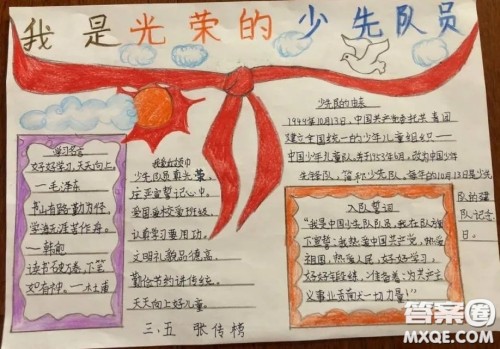 我是光荣的少先队员
学习名言
好好学习，天天向上，
——毛泽东
书山有路勤为径，
学海无涯苦作舟。
——韩愈
读书破万卷，下笔
如有神。——杜甫
我爱红领巾
少先队员真光荣。
庄严宣誓记心中。
爱国爱校爱班级，
认真学习要用功。
文明礼貌品德高，
勤俭节约讲传统。
天天向上好儿童。
三、五 张传榜
少先队的由来
1949年10月13日，中国共产党委托共青团
建立全国统一的少年儿童组织——
中国少年儿童队，并于1953年6月，改为中国少年
先锋队，简称少先队，每年的10月13日是少先
队的建
队纪念
日。
入队誓词
“我是中国少先队队员，我在队旗
下宣誓：我热爱中国共产党，热爱
祖国，热爱人民，好好学习，
好好锻炼，准备着：为共产主
义事业贡献一切力量！”
答案圈
MXQE.COM